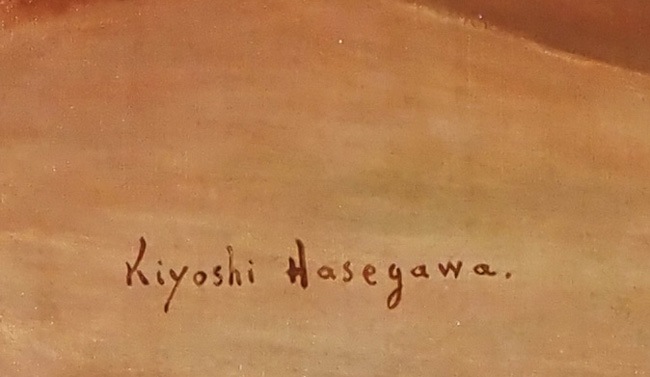 Kiyoshi Hasegawa.